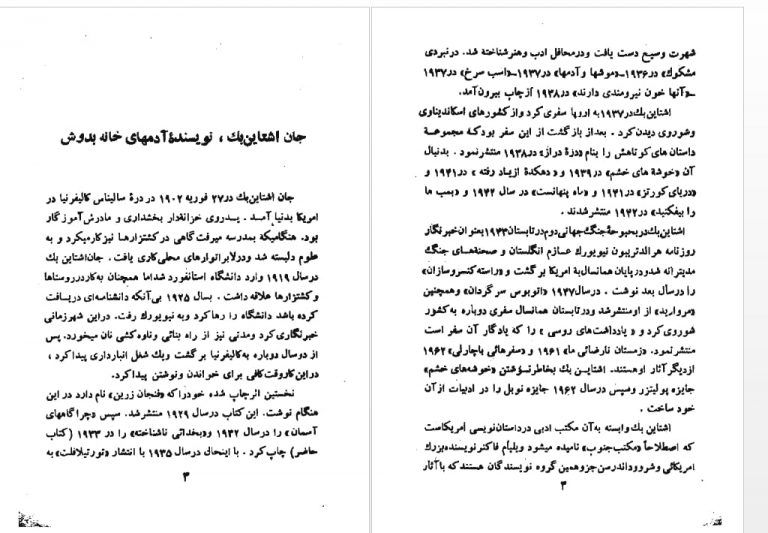 جان اشتاین‌بك ، نویسندۀ آدمهای خانه بدوش
جان اشتاین‌بك در ۲۷ فوریه ۱۹۰۲ در درۀ سالیناس کالیفرنیا در
امریکا بدنیا آمد . پدروی خزانه‌دار بخشداری و مادرش آموزگار
بود. هنگامیکه بمدرسه میرفت گاهی در کشتزارها نیز کار میکرد و به
علوم دلبسته شد و در لابراتوارهای محلی کاری یافت . جان اشتاین بك
در سال ۱۹۱۹ وارد دانشگاه استانفورد شد اما همچنان به کار در روستاها
و کشتزارها علاقه داشت . بسال ۱۹۲۵ بی‌آنکه دانشنامه‌ای دریافت
کرده باشد دانشگاه را رها کرد و به نیویورك رفت. در این شهر زمانی
خبرنگاری کرد و مدتی نیز از راه بنائی و ناوه کشی نان میخورد. پس
از دو سال دوباره به کالیفرنیا بر گشت و یك شغل انبارداری پیدا کرد ،
در این کار وقت کافی برای خواندن و نوشتن پیدا کرد.
نخستین اثر چاپ شده خود را که «فنجان زرین» نام دارد در این
هنگام نوشت. این کتاب در سال ۱۹۲۹ منتشر شد. سپس «چراگاههای
آسمان » را در سال ۱۹۳۲ و «بخدائی ناشناخته» را در ۱۹۳۳ (کتاب
حاضر) چاپ کرد . با اینحال در سال ۱۹۳۵ با انتشار «تورتیلافلت» به
۳
شهرت وسیع دست یافت و در محافل ادب و هنر شناخته شد. در نبردی
مشکوك» در ۱۹۳۶-«موشها و آدمها» در ۱۹۳۷-«اسب سرخ» در ۱۹۳۷
-«آنها خون نیرومندی دارند» در ۱۹۳۸ از چاپ بیرون آمد.
اشتاین بك در ۱۹۳۷ به اروپا سفری کرد و از کشورهای اسکاندیناوی
و شوروی دیدن کرد . بعد از بازگشت از این سفر بود که مجموعۀ
داستان های کوتاهش را بنام «درۀ دراز» در ۱۹۳۸ منتشر نمود . بدنبال
آن «خوشه های خشم» در ۱۹۳۹ و « دهکدۀ از یاد رفته » در ۱۹۴۱ و
«دریای کورتز» در ۱۹۴۱ و «ماه پنهانست» در سال ۱۹۴۲ و «بمب ها
را بیفکنید» در ۱۹۴۲ منتشر شدند .
اشتاین بك در بحبوحۀ جنگ جهانی دوم در تابستان ۱۹۴۳ بعنوان خبرنگار
روزنامه هرالد تریبون نیویورك عازم انگلستان و صحنه‌های جنگ
مدیترانه شد و در پایان همانسال به امریکا بر گشت و «راسته کنسرو سازان»
را در سال بعد نوشت . در سال ۱۹۴۷ «اتوبوس سرگردان» و همچنین
«مروارید» از او منتشر شد و در تابستان همانسال سفری دوباره به کشور
شوروی کرد و « یادداشت‌های روسی » را که یادگار آن سفر است
منتشر نمود. «زمستان نارضائی ما» ۱۹۶۱ و «سفرهائی با چارلی» ۱۹۶۲
از دیگر آثار او هستند. اشتاین بك بخاطر نوشتن «خوشه‌های خشم»
جایزه پولیتزر و سپس در سال ۱۹۶۲ جایزه نوبل را در ادبیات از آن
خود ساخت .
اشتاین بك وابسته به آن مکتب ادبی در داستان نویسی امریکاست
که اصطلاحاً «مکتب جنوب» نامیده میشود و ویلیام فاکنر نویسنده بزرك
امریکائی و شروود اندرسن جزو همین گروه نویسندگان هستند که با آثار
۴